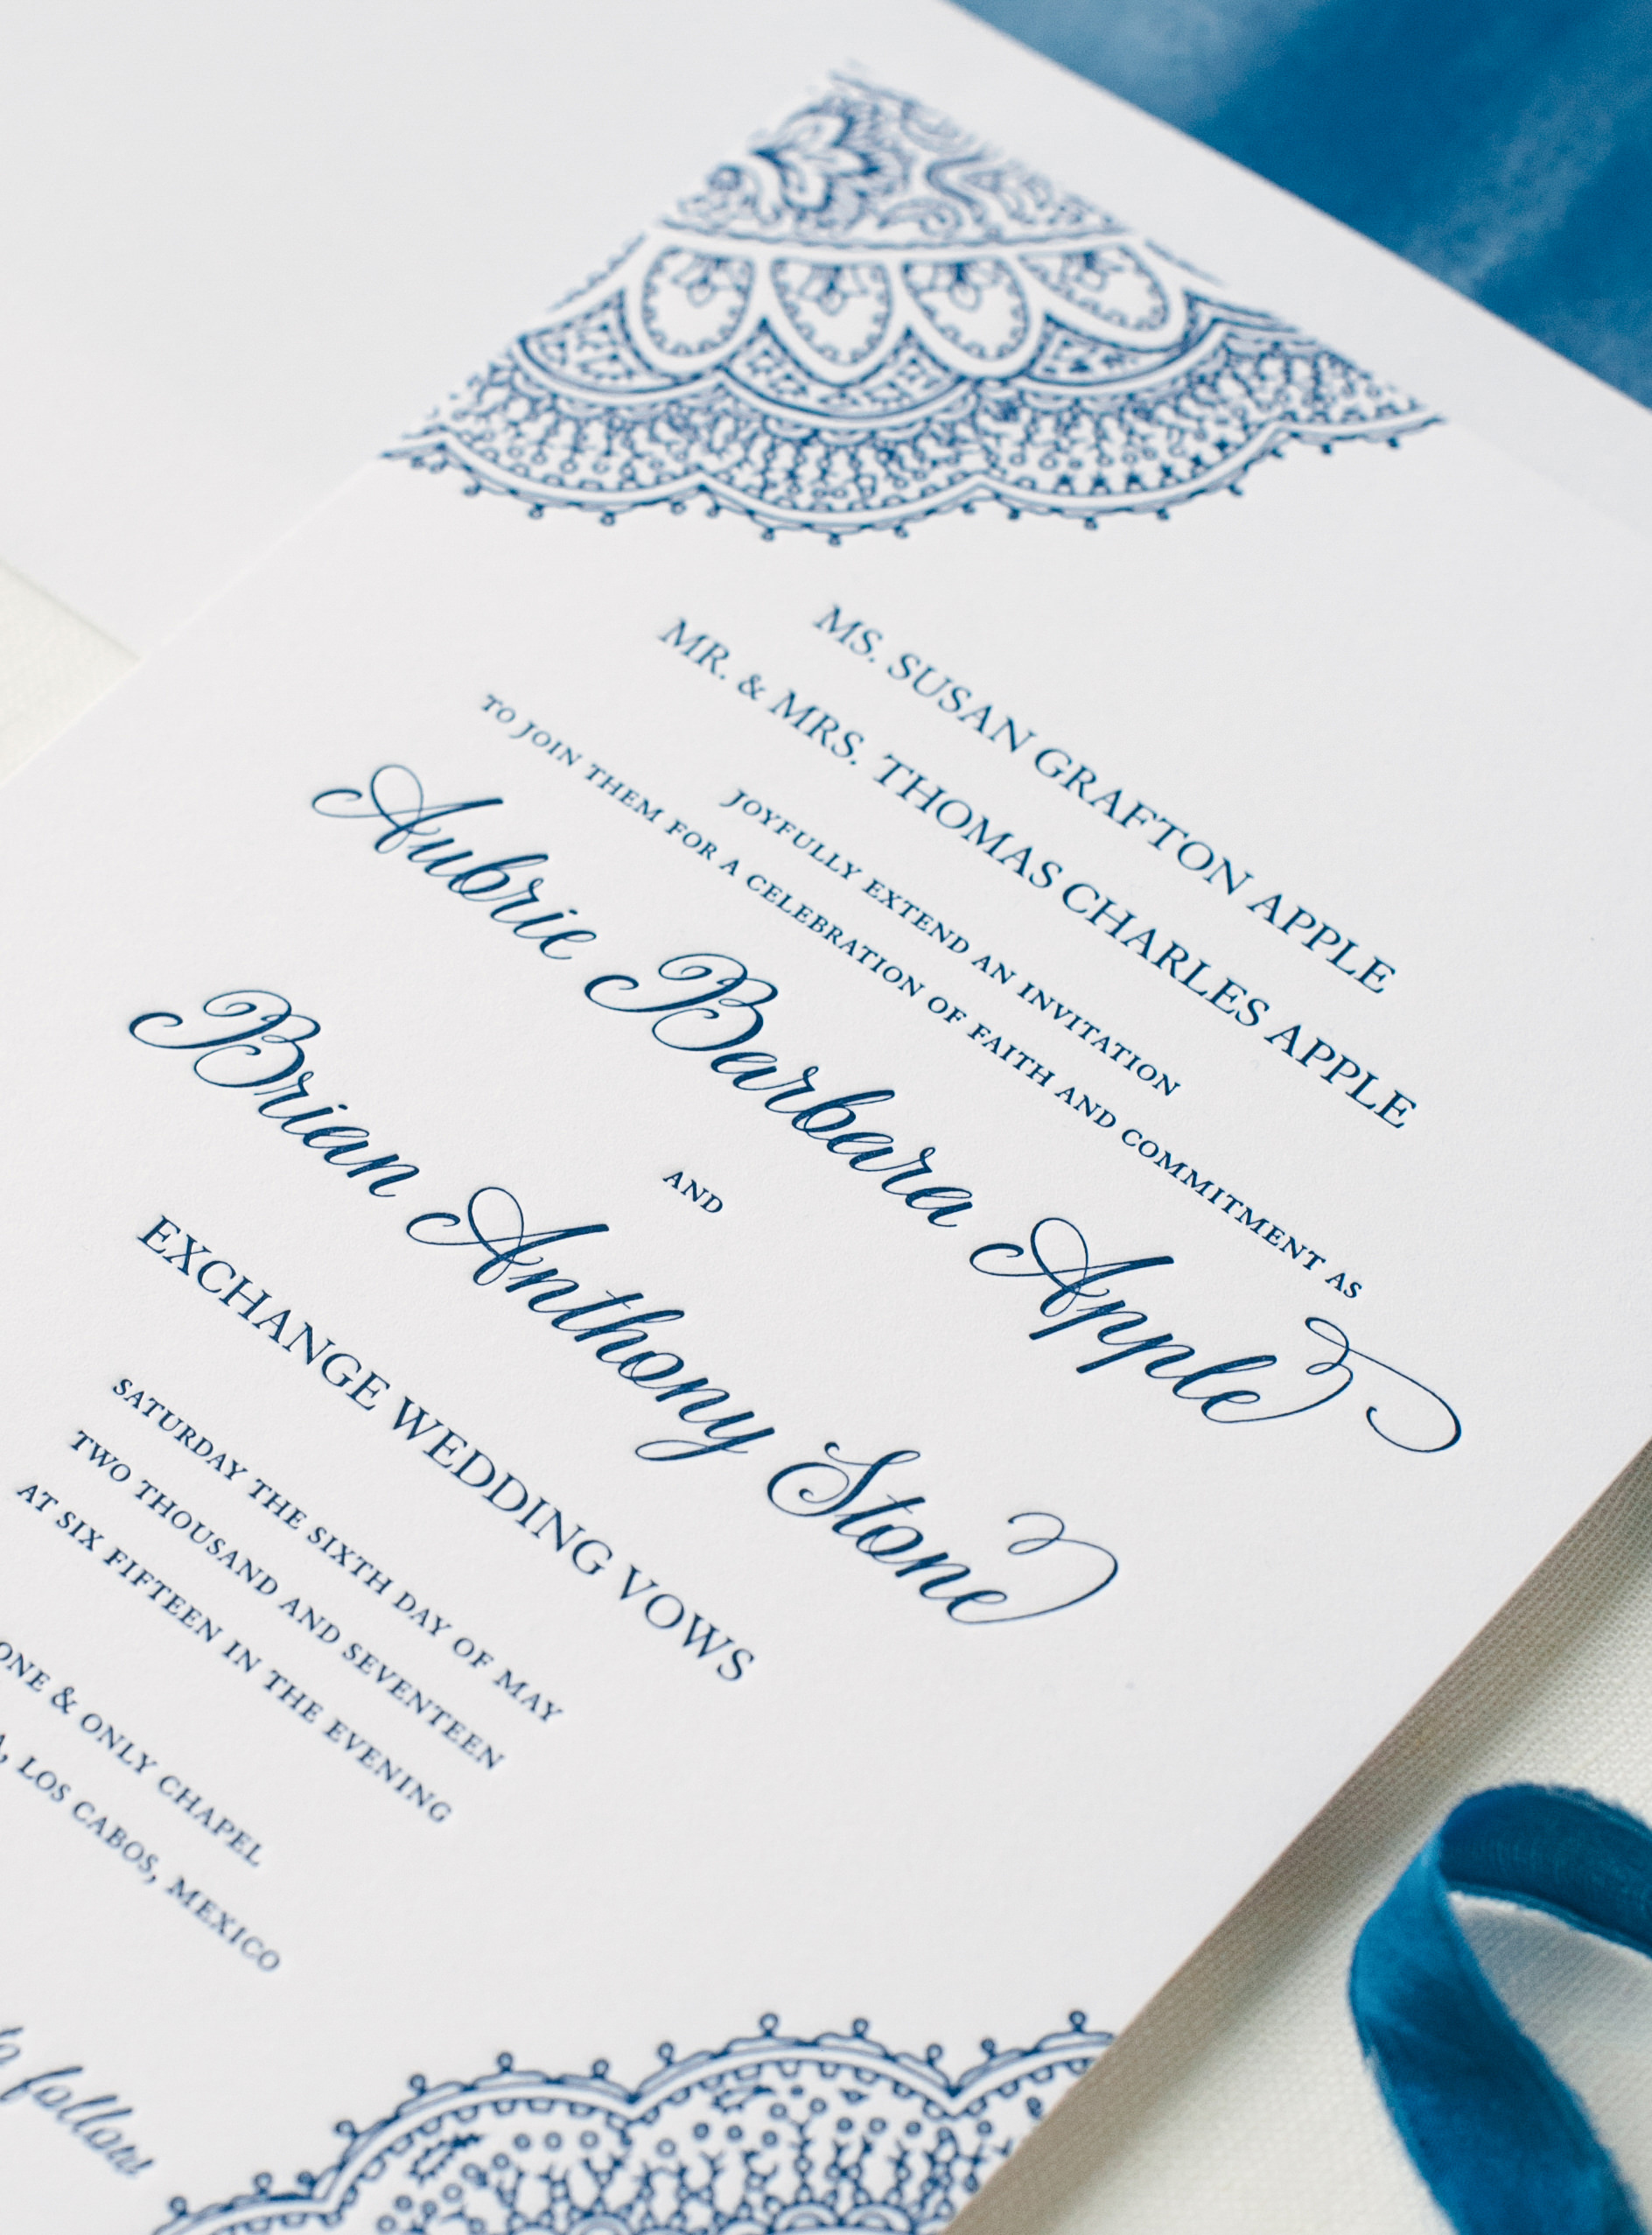 MS. SUSAN GRAFTON APPLE
MR. & MRS. THOMAS CHARLES APPLE
JOYFULLY EXTEND AN INVITATION
TO JOIN THEM FOR A CELEBRATION OF FAITH AND COMMITMENT AS
Aubrie Barbara Apple
AND
Brian Anthony Stone
EXCHANGE WEDDING VOWS
SATURDAY THE SIXTH DAY OF MAY
TWO THOUSAND AND SEVENTEEN
AT SIX FIFTEEN IN THE EVENING
ONE & ONLY CHAPEL
LOS CABOS, MEXICO
follow